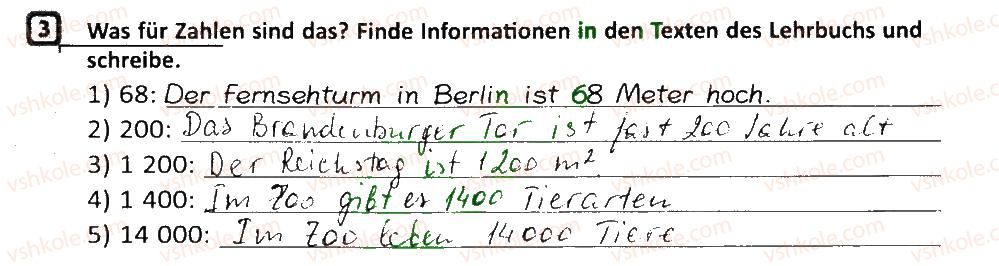 3 Was für Zahlen sind das? Finde Informationen in den Texten des Lehrbuchs und
schreibe.
1) 68: Der Fernsehturm in Berlin ist 68 Meter hoch.
2) 200: Das Brandenburger Tor ist fast 200 Jahre alt
3) 1 200: Der Reichstag ist 1200 m²
4) 1 400: Im Zoo gibt es 1400 Tierarten
5) 14 000: Im Zoo leben 14000 Tiere